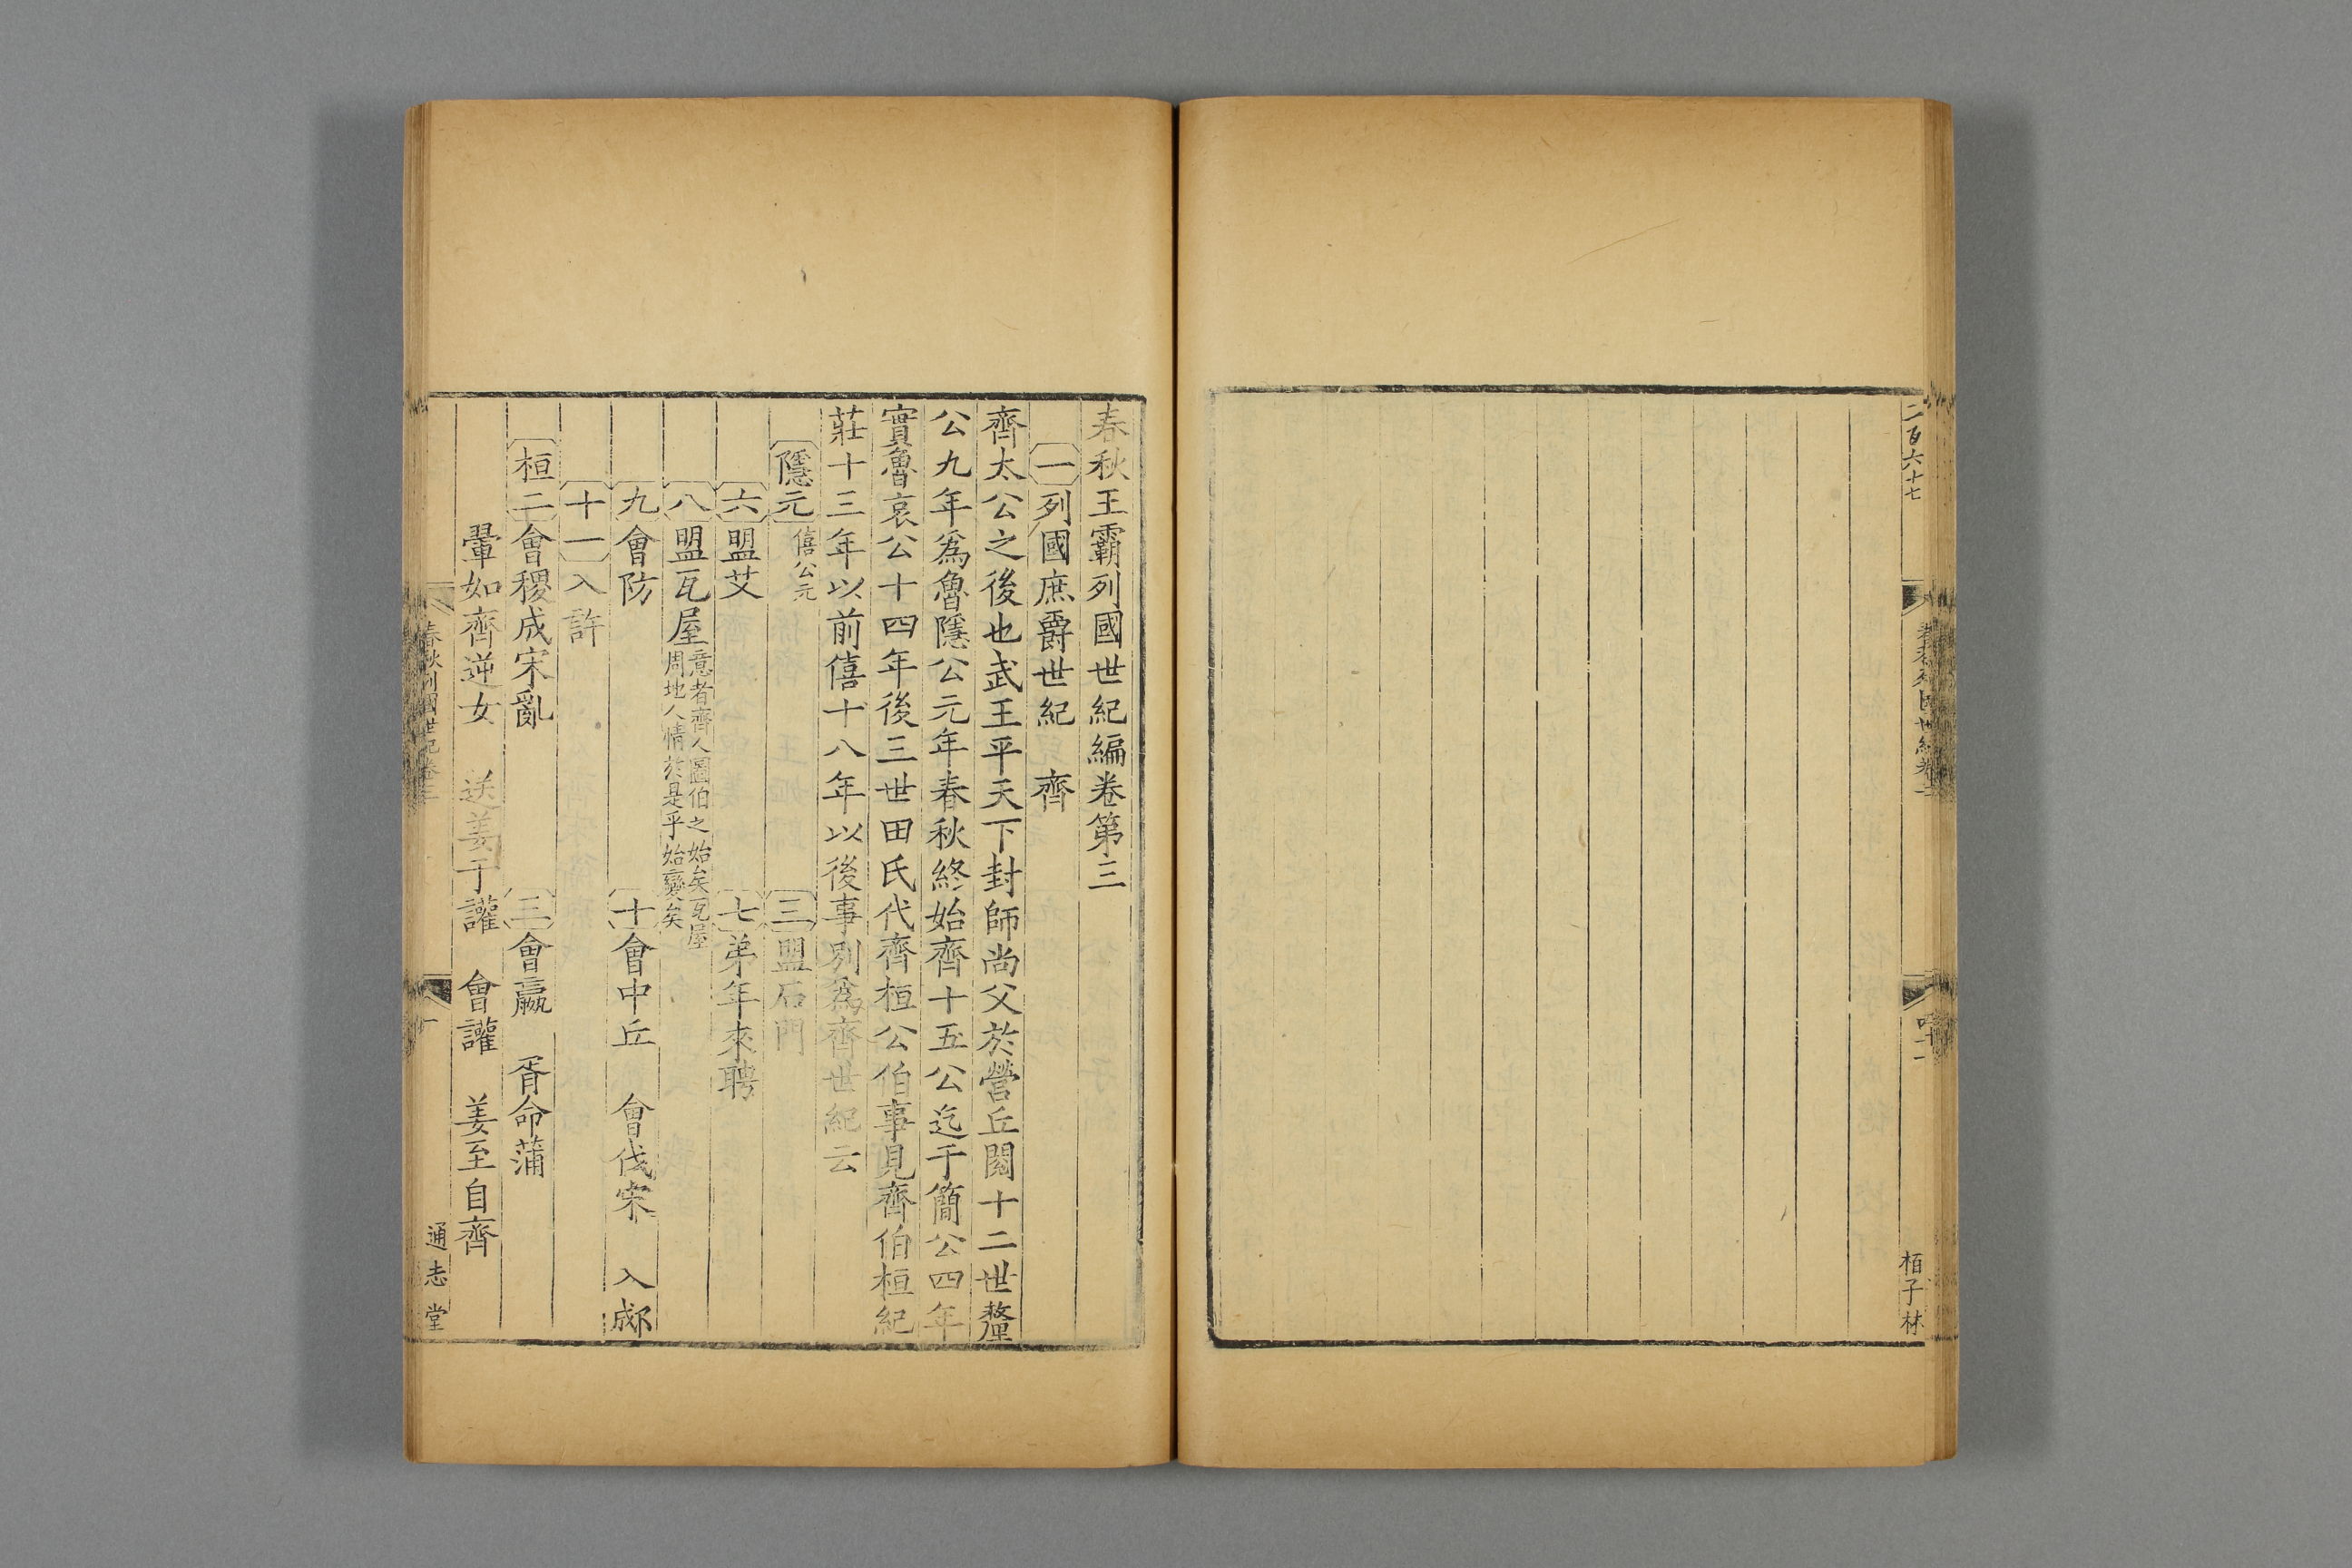 二百六十七
春秋列國世紀卷二
四十一
栢子林
春秋王霸列國世紀編卷第三
一列國庶爵世紀　齊
齊太公之後也武王平天下封師尚父於營丘閱十二世釐
公九年爲魯隱公元年春秋終始齊十五公迄于簡公四年
實魯哀公十四年後三世田氏代齊桓公伯事見齊伯桓紀
莊十三年以前僖十八年以後事別爲齊世紀云
隱元僖公元　三盟石門
六盟艾　七弟年來聘
八盟瓦屋意者齊人圖伯之始矣瓦屋
周地人情於是乎始變矣
九會防　十會中丘　會伐宋　入郕
十一入許
桓二會稷成宋亂　三會嬴　胥命蒲
翬如齊逆女　送姜于讙　會讙　姜至自齊
春秋列國世紀卷三
一
通志堂